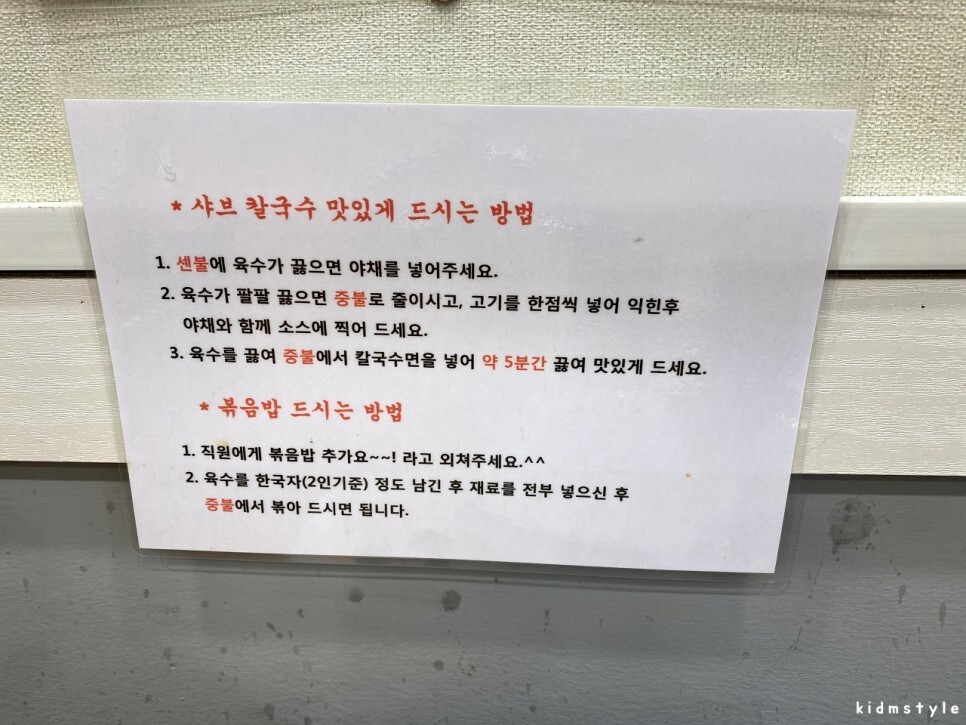 * 샤브 칼국수 맛있게 드시는 방법
1. 센불에 육수가 끓으면 야채를 넣어주세요.
2. 육수가 팔팔 끓으면 중불로 줄이시고, 고기를 한점씩 넣어 익힌후
야채와 함께 소스에 찍어 드세요.
3. 육수를 끓여 중불에서 칼국수면을 넣어 약 5분간 끓여 맛있게 드세요.
* 볶음밥 드시는 방법
1. 직원에게 볶음밥 추가요~~! 라고 외쳐주세요.^^
2. 육수를 한국자(2인기준) 정도 남긴 후 재료를 전부 넣으신 후
중불에서 볶아 드시면 됩니다.
kidmstyle